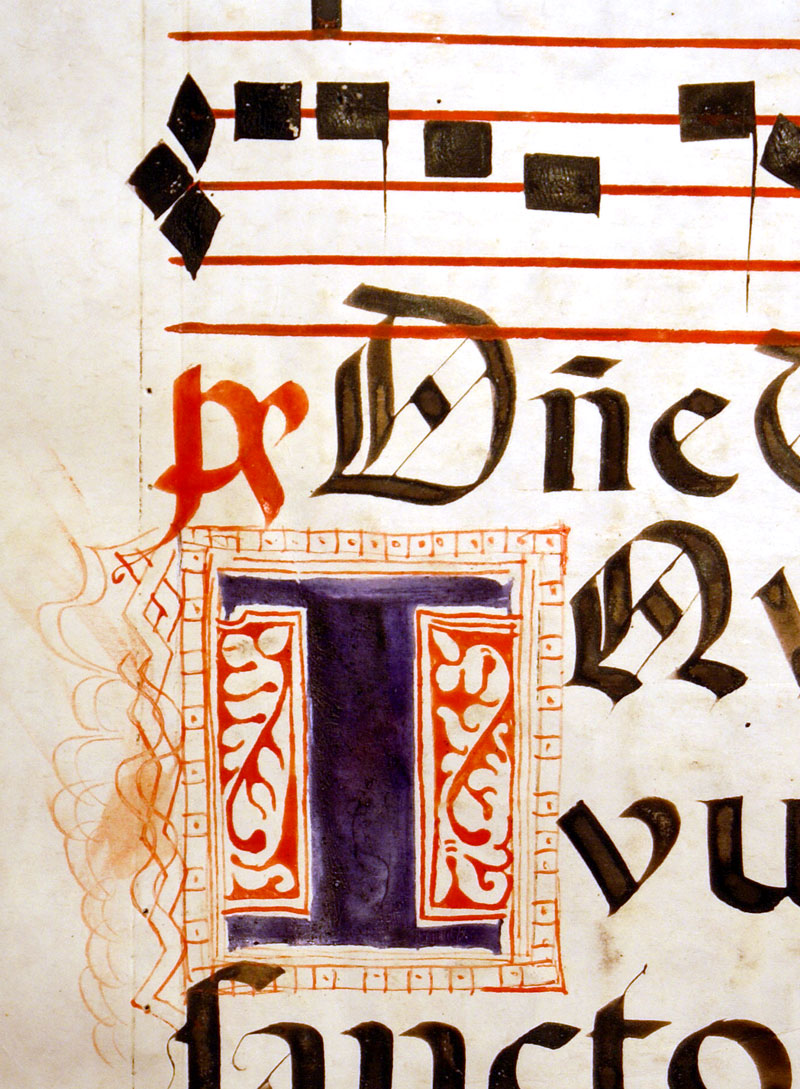 Dñe
IN
vu
ſancto